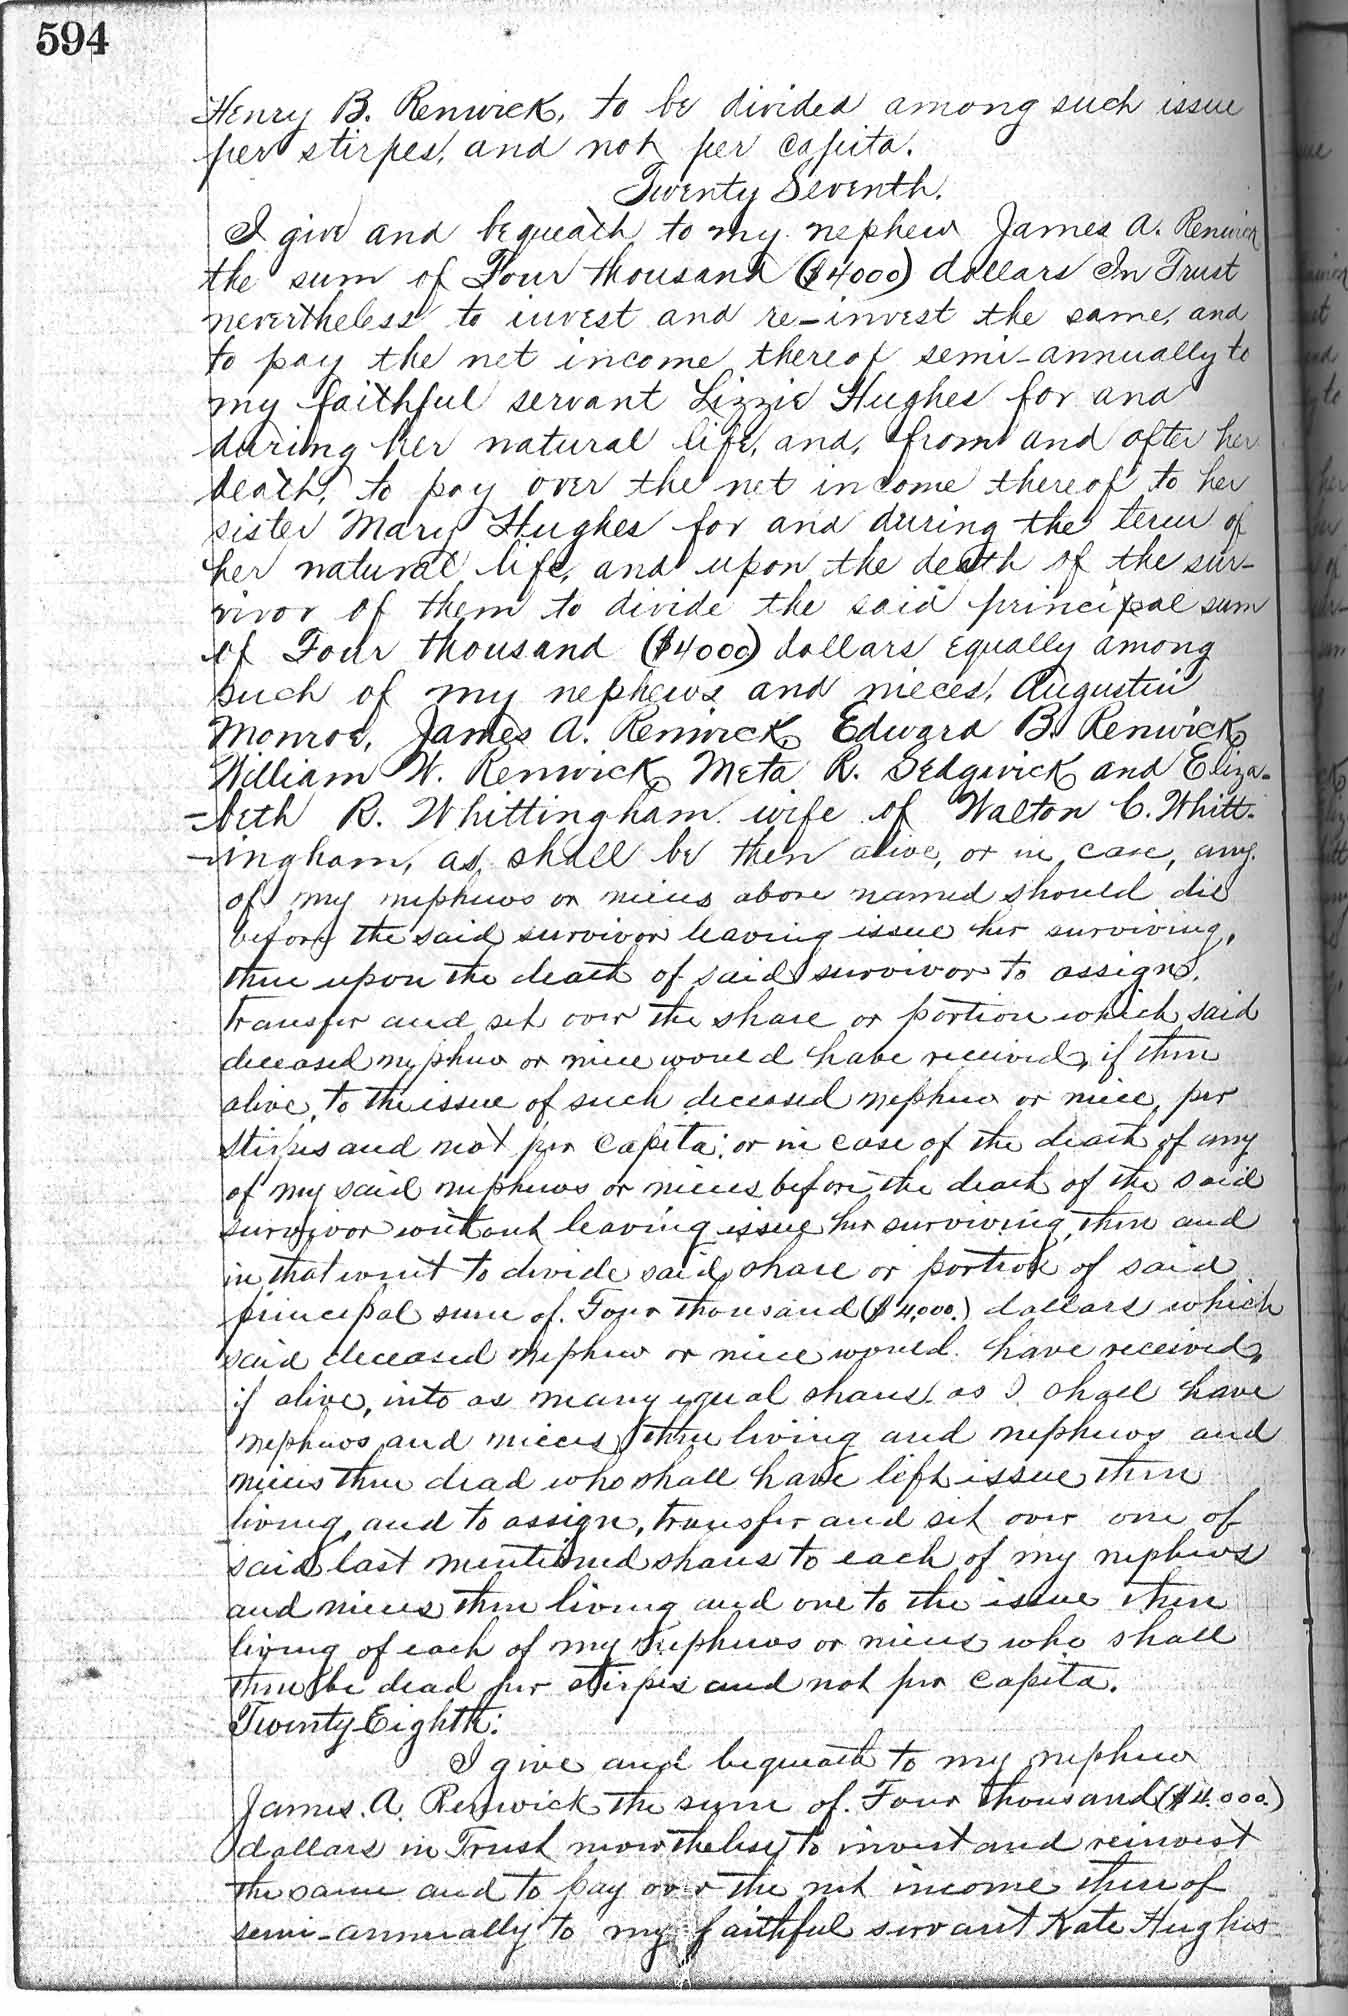 594
Henry B. Renwick, to be divided among such issue
per stirpes, and not per capita.
Twenty Seventh.
I give and bequeath to my nephew James A. Renwick
the sum of Four thousand ($4000) dollars In Trust
nevertheless to invest and re-invest the same, and
to pay the net income thereof semi-annually to
my faithful servant Lizzie Hughes for and
during her natural life, and, from and after her
death, to pay over the net income thereof to her
sister Mary Hughes for and during the term of
her natural life, and upon the death of the sur-
vivor of them to divide the said principal sum
of Four thousand ($4000) dollars equally among
such of my nephews and nieces, Augustin
Monroe, James A. Renwick, Edward B. Renwick,
William W. Renwick, Meta R. Sedgwick and Eliza-
-beth R. Whittingham wife of Walton C. Whitt-
-ingham, as shall be then alive, or in case, any
of my nephews or nieces above named should die
before the said survivor leaving issue her surviving,
then upon the death of said survivor to assign,
transfer and set over the share or portion which said
deceased nephew or niece would have received, if then
alive, to the issue of such deceased nephew or niece, per
stirpes and not per capita; or in case of the death of any
of my said nephews or nieces before the death of the said
survivor without leaving issue her surviving, then and
in that event to divide said share or portion of said
principal sum of Four thousand ($4,000.) dollars which
said deceased nephew or niece would have received,
if alive, into as many equal shares as I shall have
nephews and nieces then living and nephews and
nieces then dead who shall have left issue then
living, and to assign, transfer and set over one of
said last mentioned shares to each of my nephews
and nieces then living and one to the issue then
living of each of my nephews or nieces who shall
then be dead per stirpes and not per capita.
Twenty Eighth:
I give and bequeath to my nephew
James. A. Renwick the sum of Four thousand ($4.000.)
dollars in Trust nevertheless to invest and reinvest
the same and to pay over the net income thereof
semi-annually to my faithful servant Kate Hughes